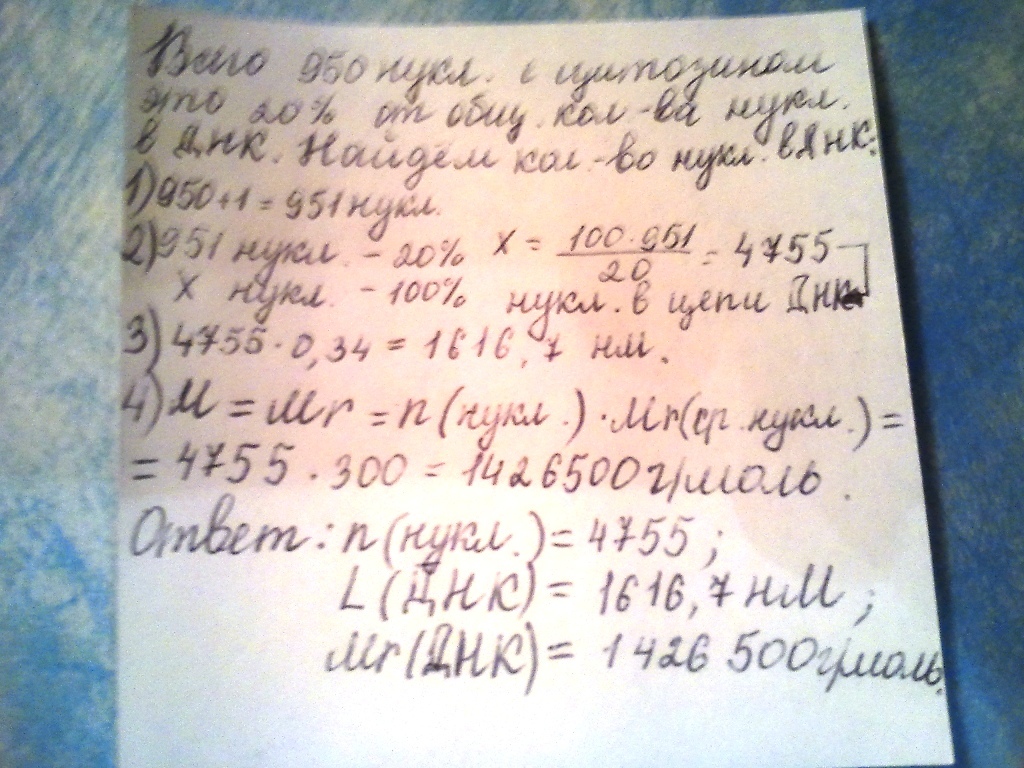 Всего 950 нукл. с цитозином
это 20% от общ. кол-ва нукл.
в ДНК. Найдём кол-во нукл. в ДНК:
1) 950+1 = 951 нукл.
2) 951 нукл. - 20% X = 100·951/20 = 4755
X нукл. - 100% нукл. в цепи ДНК
3) 4755·0,34 = 1616,7 нм.
4) M = Mr = n(нукл.)·Mr(ср.нукл.) =
= 4755·300 = 1426500г/моль.
Ответ: n(нукл.) = 4755;
L(ДНК) = 1616,7 нм;
Mr(ДНК) = 1426 500г/моль.